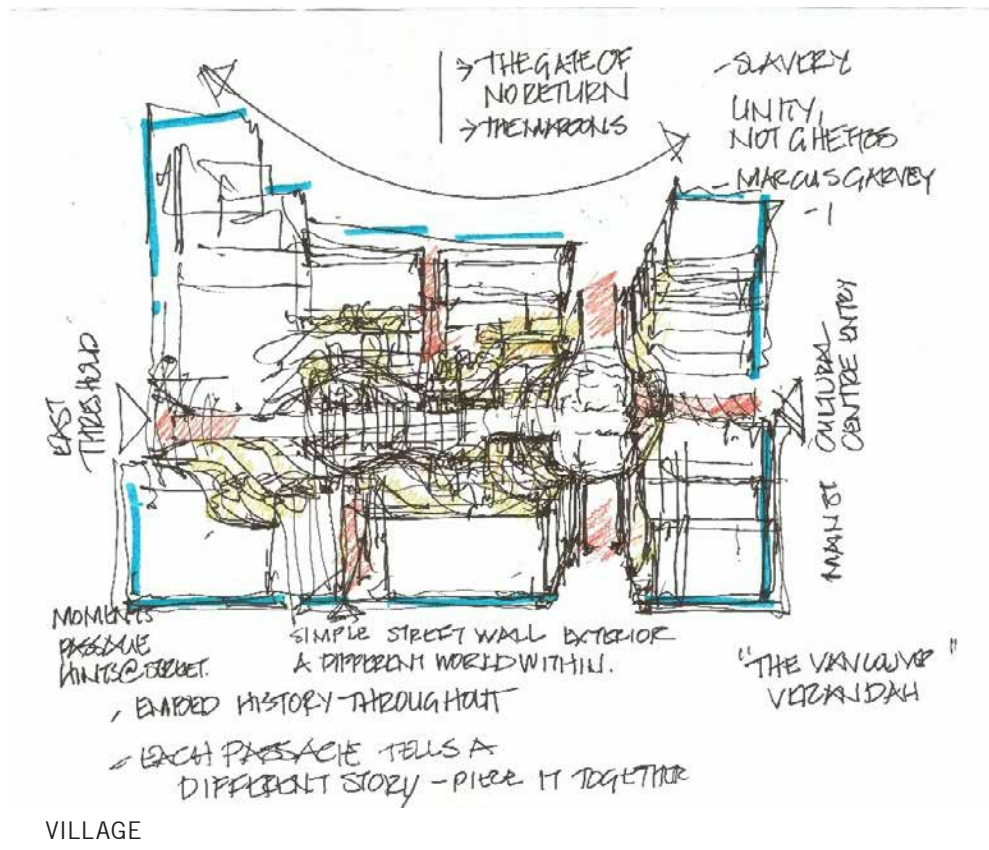 → THE GATE OF
NO RETURN
→ THE MAROONS
- SLAVERY
UNITY,
NOT GHETTOS
- MARCUS GARVEY
EAST
THRESHOLD
CULTURAL
CENTRE ENTRY
MAIN ST
MOMENTS
PASSAGE
HINTS@STREET.
SIMPLE STREET WALL EXTERIOR
A DIFFERENT WORLD WITHIN.
"THE VANCOUVER"
VERANDAH
- EMBED HISTORY THROUGHOUT
- EACH PASSAGE TELLS A
DIFFERENT STORY - PIECE IT TOGETHER
VILLAGE